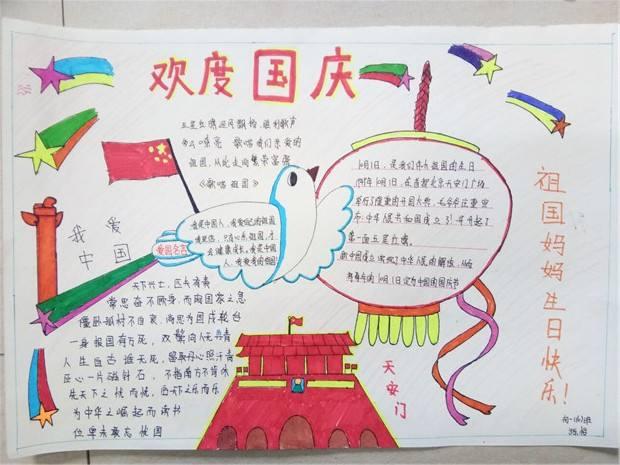 欢度国庆
五星红旗迎风飘扬，胜利歌声
多么响亮 歌唱我们亲爱的
祖国，从此走向繁荣富强
《歌唱祖国》
我爱
中国
爱国名言
我是中国人，我爱自己的祖国
天下兴亡，匹夫有责
常思奋不顾身，而殉国家之急
僵卧孤村不自哀，尚思为国戍轮台
一身报国有万死，双鬓向人无再青
人生自古谁无死，留取丹心照汗青
臣心一片磁针石，不指南方不肯休
先天下之忧而忧，后天下之乐而乐
为中华之崛起而读书
位卑未敢忘忧国
10月1日，是我们伟大祖国的生日
1949年10月1日，在首都北京天安门广场
举行了隆重的开国大典，毛泽东庄重宣
布中华人民共和国成立了！并升起了
第一面五星红旗。
天安门
祖国妈妈生日快乐！